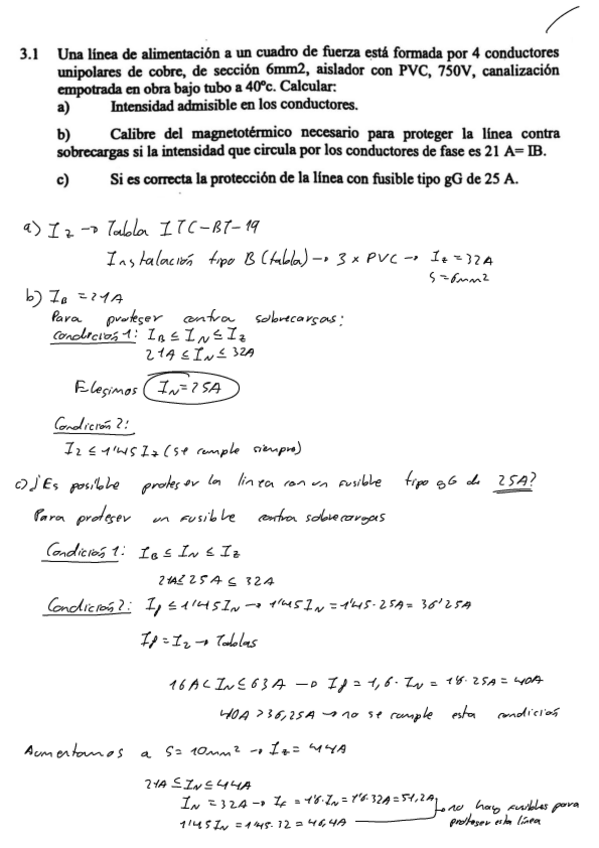 3.1 Una línea de alimentación a un cuadro de fuerza está formada por 4 conductores
unipolares de cobre, de sección 6mm2, aislador con PVC, 750V, canalización
empotrada en obra bajo tubo a 40ºc. Calcular:
a) Intensidad admisible en los conductores.
b) Calibre del magnetotérmico necesario para proteger la línea contra
sobrecargas si la intensidad que circula por los conductores de fase es 21 A= IB.
c) Si es correcta la protección de la línea con fusible tipo gG de 25 A.
a) Iz → Tabla ITC-BT-19
Instalación tipo B (tabla) → 3 x PVC → Iz = 32A
S = 6mm2
b) IB = 21A
Para proteger contra sobrecargas:
Condición 1: IB ≤ IN ≤ Iz
21A ≤ IN ≤ 32A
Elegimos IN = 25A
Condición 2:
I2 ≤ 1'45 Iz (se cumple siempre)
c) ¿Es posible proteger la linea con un fusible tipo gG de 25A?
Para proteger un fusible contra sobrecargas
Condición 1: IB ≤ IN ≤ Iz
21A ≤ 25A ≤ 32A
Condición 2: If ≤ 1'45 IN → 1'45 IN = 1'45 · 25A = 36'25A
If = I2 → Tablas
16A < IN ≤ 63A → If = 1,6 · IN = 1'6 · 25A = 40A
40A > 36,25A → no se cumple esta condición
Aumentamos a S = 10mm2 → Iz = 44A
21A ≤ IN ≤ 44A
IN = 32A → If = 1'6 · IN = 1'6 · 32A = 51,2A
1'45 IN = 1'45 · 32 = 46,4A
→ no hay fusibles para
proteger esta línea